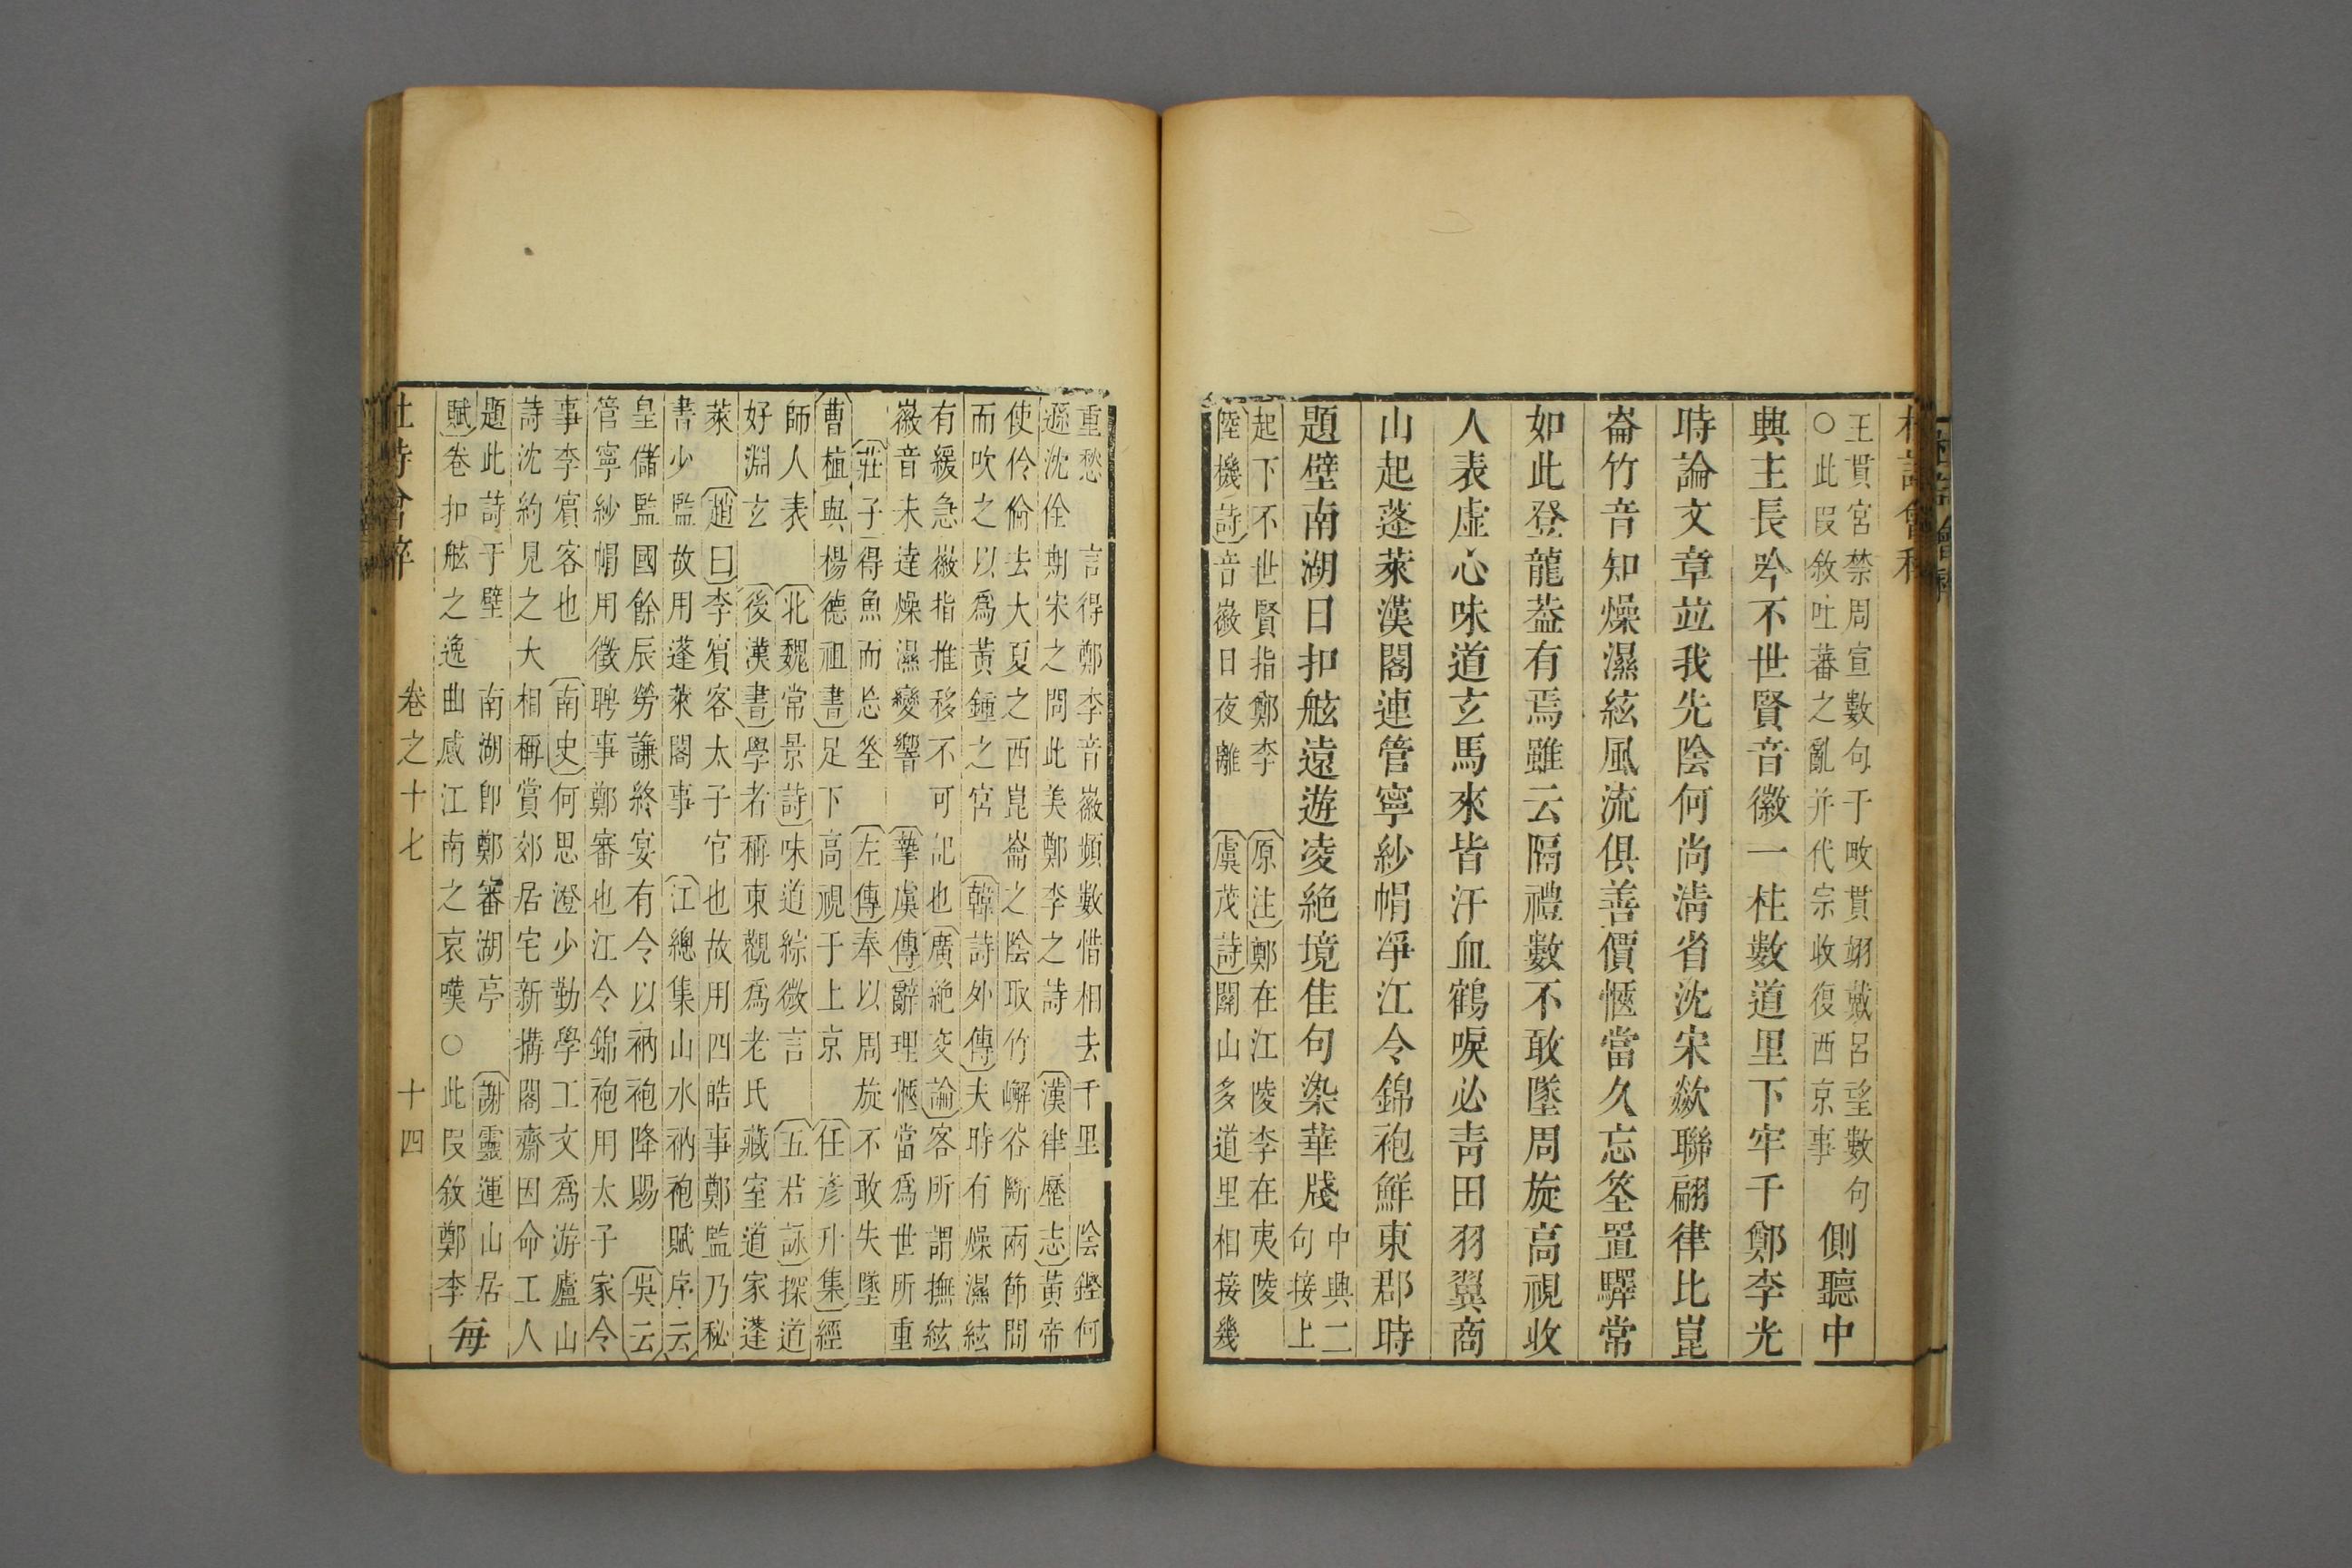 杜詩會稡
王貢宮禁周宣數句于畋貢翊戴呂望數句
○此叚敘吐蕃之亂并代宗收復西京事
側聽中
典主長吟不世賢音徽一柱數道里下牢千鄭李光
時論文章竝我先陰何尚淸省沈宋歘聯翩律比崑
崙竹音知燥濕絃風流俱善價愜當久忘筌置驛常
如此登龍葢有焉雖云隔禮數不敢墜周旋高視收
人表虛心味道玄馬來皆汗血鶴唳必靑田羽翼商
山起蓬萊漢閣連管寧紗帽凈江令錦袍鮮東郡時
題壁南湖日扣舷遠遊凌絕境佳句染華牋
中典二
句接上
起下不世賢指鄭李
原注鄭在江陵李在夷陵
陸機詩音徽日夜離
虞茂詩關山多道里相接幾
重愁
言得鄭李音徽頻數惜相去千里
陰鏗何
遜沈佺期宋之問此美鄭李之詩
漢律歷志黃帝
使伶倫去大夏之西崑崙之陰取竹嶰谷斷兩節間
而吹之以爲黃鍾之宮
韓詩外傳夫時有燥濕絃
有緩急徽指推移不可記也廣絕交論客所謂撫絃
徽音未達燥濕變響
摯虞傳辭理愜當爲世所重
莊子得魚而忘筌
左傳奉以周旋不敢失墜
曹植與楊德祖書足下高視于上京
任彥升集經
師人表
北魏常景詩味道綜微言
五君詠探道
好淵玄
後漢書學者稱東觀爲老氏藏室道家蓬
萊
趙曰李賔客太子官也故用四皓事鄭監乃秘
書少監故用蓬萊閣事
江總集山水衲袍賦序云
皇儲監國餘辰勞謙終宴有令以衲袍降賜
吳云
管寧紗帽用徵聘事鄭審也江令錦袍用太子家令
事李賔客也
南史何思澄少勤學工文爲游廬山
詩沈約見之大相稱賞郊居宅新搆閣齋因命工人
題此詩于壁
南湖卽鄭審湖亭
謝靈運山居
賦卷扣舷之逸曲感江南之哀嘆○此叚敘鄭李
每
杜詩會稡
卷之十七
十四